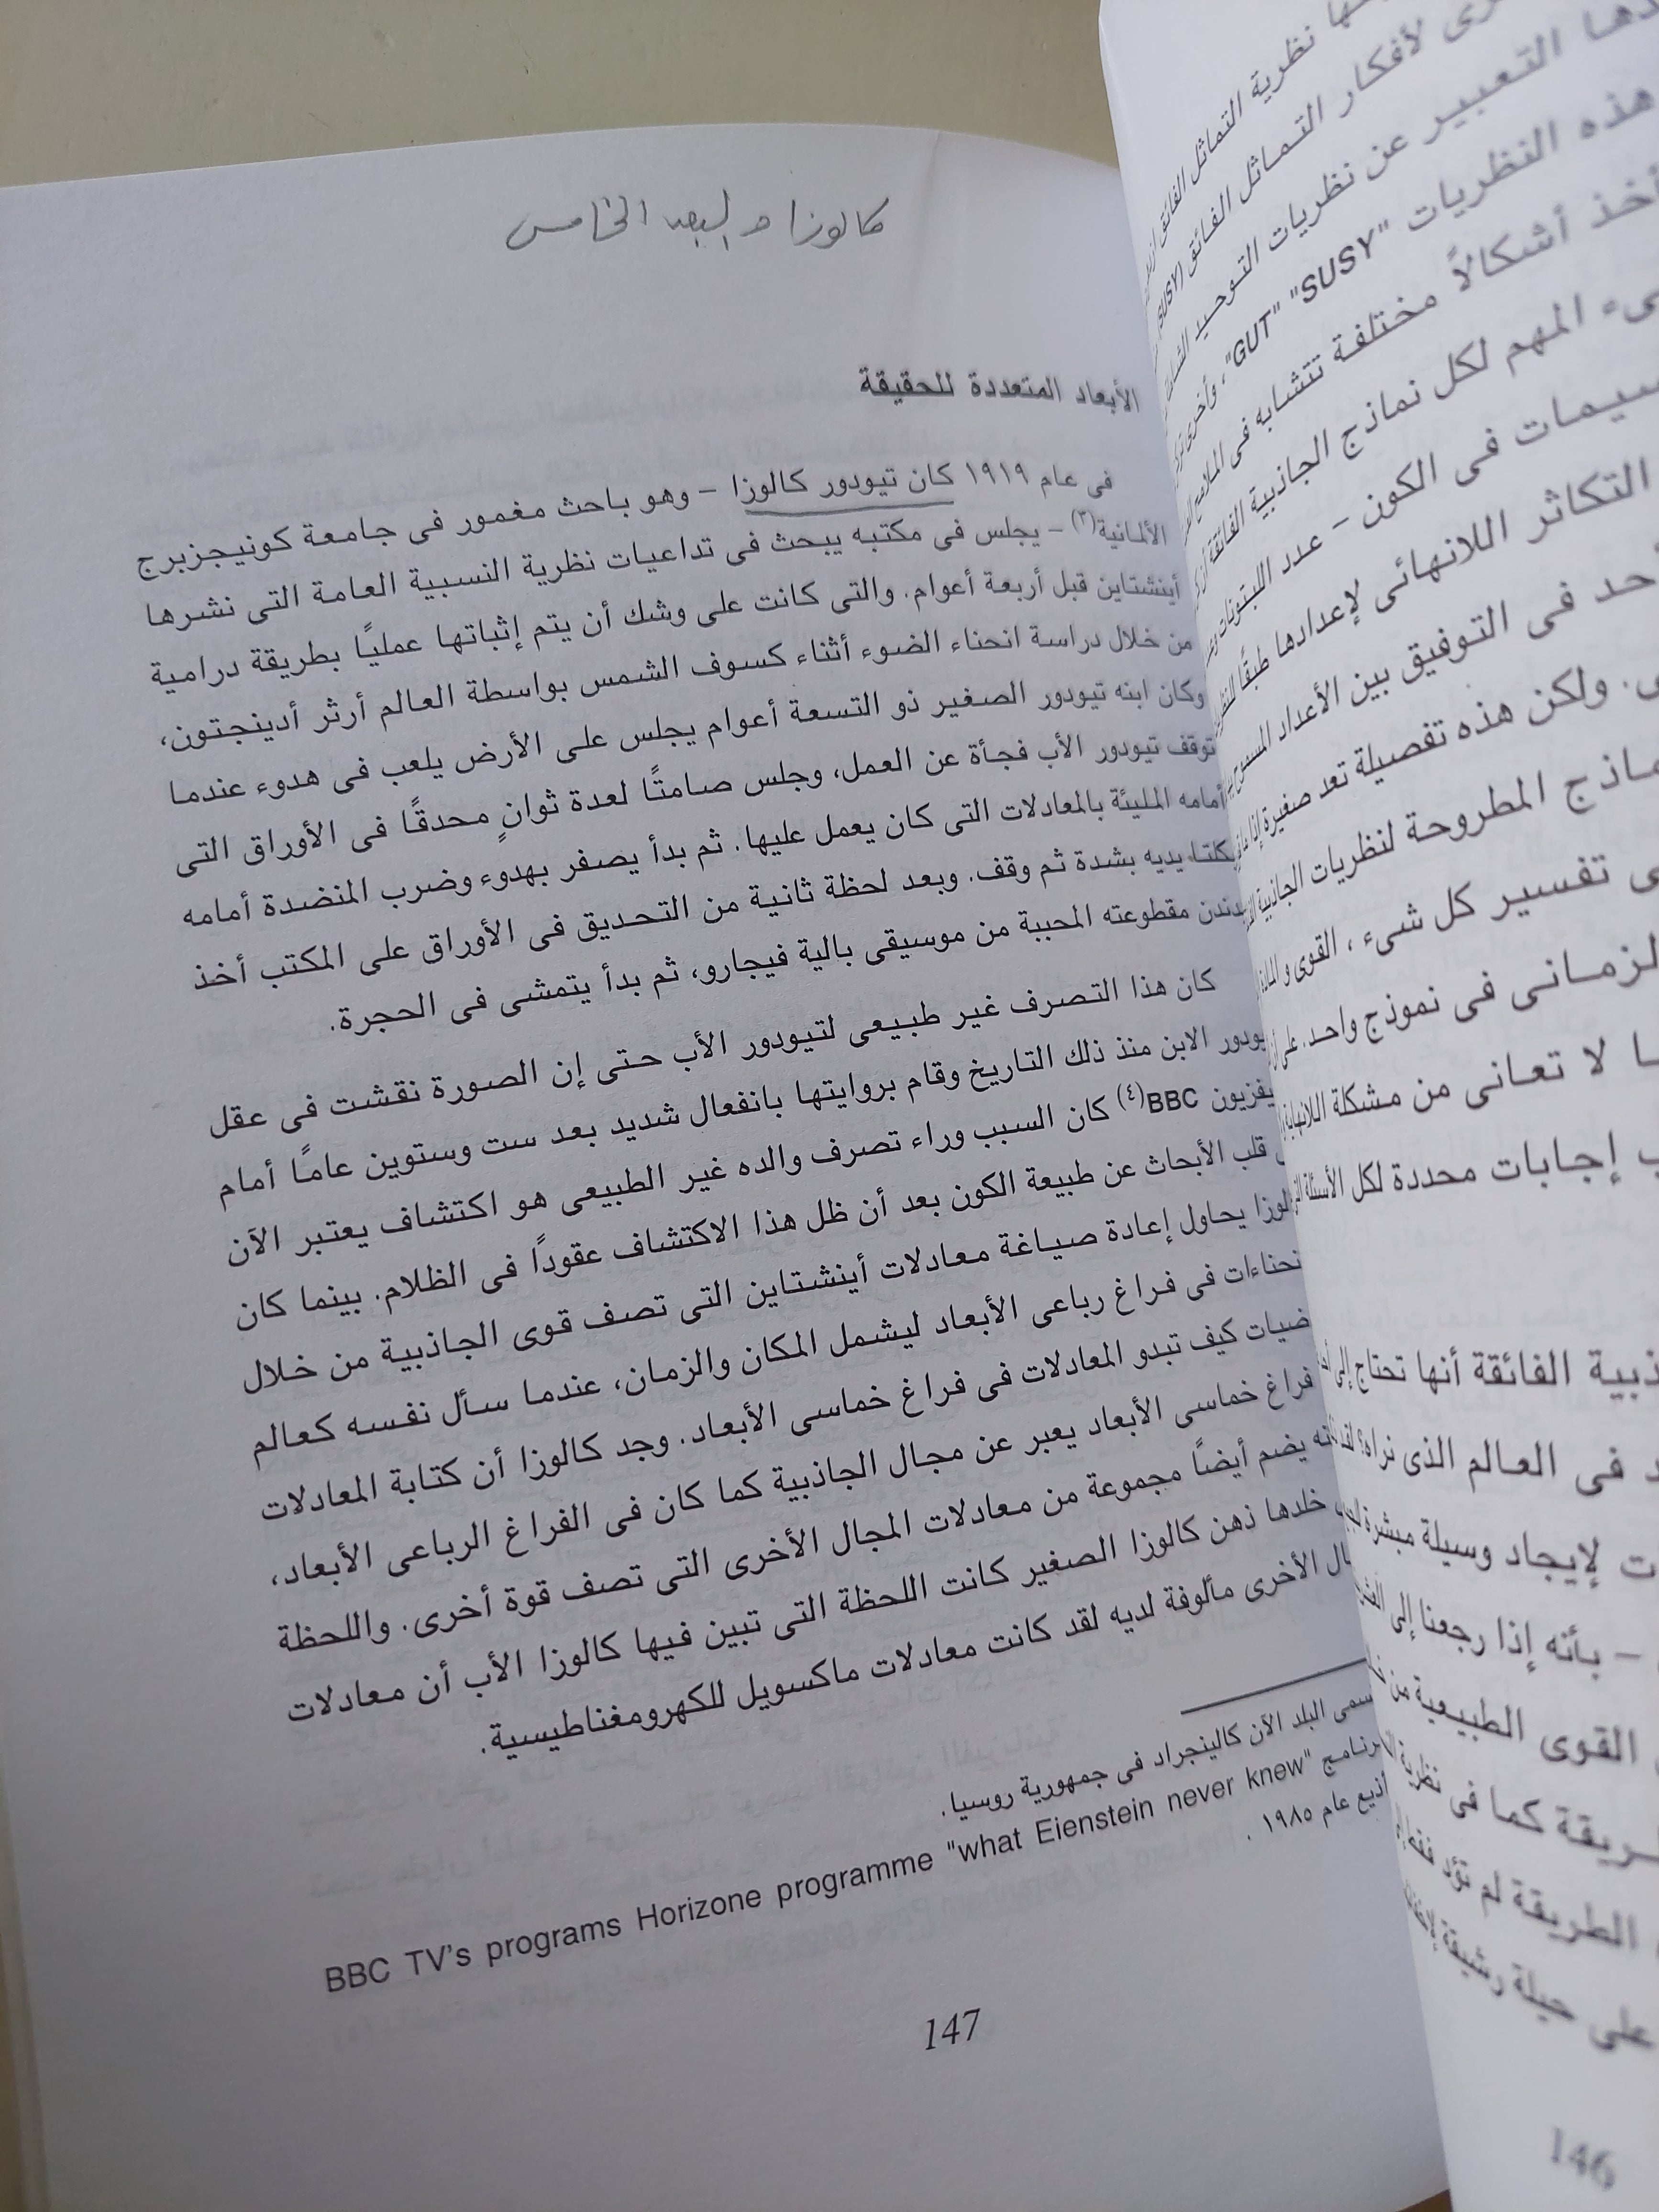 كالوزا و البعد الخامس
الأبعاد المتعددة للحقيقة
فى عام ١٩١٩ كان تيودور كالوزا – وهو باحث مغمور فى جامعة كونيجزبرج
الألمانية(٣) – يجلس فى مكتبه يبحث فى تداعيات نظرية النسبية العامة التى نشرها
أينشتاين قبل أربعة أعوام. والتى كانت على وشك أن يتم إثباتها عمليًا بطريقة درامية
من خلال دراسة انحناء الضوء أثناء كسوف الشمس بواسطة العالم أرثر أدينجتون،
وكان ابنه تيودور الصغير ذو التسعة أعوام يجلس على الأرض يلعب فى هدوء عندما
توقف تيودور الأب فجأة عن العمل، وجلس صامتًا لعدة ثوانٍ محدقًا فى الأوراق التى
أمامه المليئة بالمعادلات التى كان يعمل عليها. ثم بدأ يصفر بهدوء وضرب المنضدة أمامه
بكتا يديه بشدة ثم وقف. وبعد لحظة ثانية من التحديق فى الأوراق على المكتب أخذ
يدندن مقطوعته المحببة من موسيقى بالية فيجارو، ثم بدأ يتمشى فى الحجرة.
كان هذا التصرف غير طبيعى لتيودور الأب حتى إن الصورة نقشت فى عقل
يودور الابن منذ ذلك التاريخ وقام بروايتها بانفعال شديد بعد ست وستوين عامًا أمام
يفزيون BBC(٤) كان السبب وراء تصرف والده غير الطبيعى هو اكتشاف يعتبر الآن
قلب الأبحاث عن طبيعة الكون بعد أن ظل هذا الاكتشاف عقودًا فى الظلام. بينما كان
لوزا يحاول إعادة صياغة معادلات أينشتاين التى تصف قوى الجاذبية من خلال
نحناءات فى فراغ رباعى الأبعاد ليشمل المكان والزمان، عندما سأل نفسه كعالم
ضيات كيف تبدو المعادلات فى فراغ خماسى الأبعاد. وجد كالوزا أن كتابة المعادلات
فراغ خماسى الأبعاد يعبر عن مجال الجاذبية كما كان فى الفراغ الرباعى الأبعاد،
نه يضم أيضاً مجموعة من معادلات المجال الأخرى التى تصف قوة أخرى. واللحظة
خلدها ذهن كالوزا الصغير كانت اللحظة التى تبين فيها كالوزا الأب أن معادلات
ال الأخرى مألوفة لديه لقد كانت معادلات ماكسويل للكهرومغناطيسية.
سمى البلد الآن كالينجراد فى جمهورية روسيا.
برنامج BBC TV's programs Horizone programme "what Eienstein never knew"
أذيع عام ١٩٨٥ .
147
نظرية التماثل الفائق
لأفكار التماثل الفائق (SUSY)
التعبير عن نظريات التوحيد
هذه النظريات "GUT" "SUSY"، وأخرى
أخذ أشكالاً مختلفة تتشابه فى الملامح
المهم لكل نماذج الجاذبية الفائقة
سيمات فى الكون – عدد اللبتونات
التكاثر اللانهائى لإعدادها طبقًا
حد فى التوفيق بين الأعداد المسموح
ولكن هذه تفصيلة تعد صغيرة إذا
ماذج المطروحة لنظريات الجاذبية
ى تفسير كل شىء ، القوى و
لزمانى فى نموذج واحد. على
ا لا تعانى من مشكلة
ب إجابات محددة لكل الأسئلة
ذبية الفائقة أنها تحتاج إلى
د فى العالم الذى نراه؟
ت لإيجاد وسيلة مبشرة
– بأنه إذا رجعنا إلى
القوى الطبيعية من
ريقة كما فى نظرية
الطريقة لم تؤد فقط
على حيلة رشيقة
146